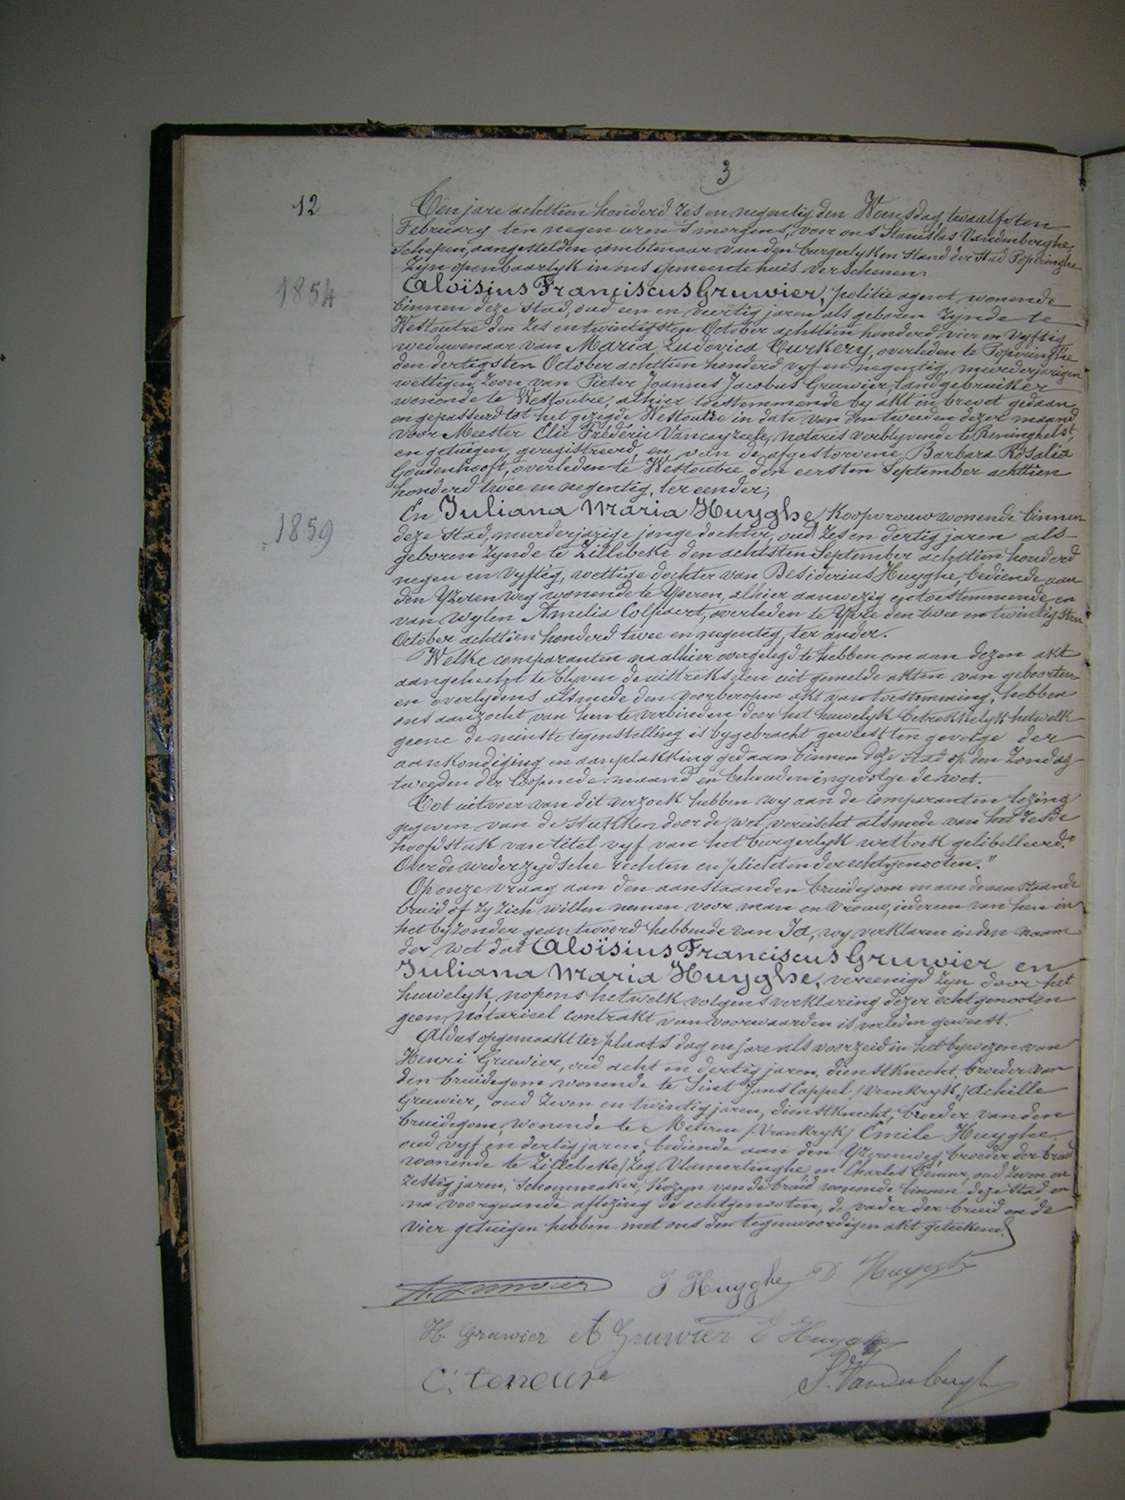 3
12
Ten jare achttien honderd zes en negentig den Woensdag, twaalfsten
February ten negen uren 's morgens, voor ons Stanislas Vandenberghe,
Schepen, aangestelden ambtenaar van den burgerlyken stand der Stad Poperinghe
Zyn openbaarlyk in ons gemeentehuis verschenen
1854
Aloïsius Franciscus Gruwier, politie agent, wonende
binnen deze stad, oud een en veertig jaren als geboren zynde te
Westoutre den zes en twintigsten October achttien honderd vier en vyftig
weduwenaar van Maria Ludovica Curkery, overleden te Poperinghe
den dertigsten October achttien honderd vyf en negentig, meerderjarigen
wettigen Zoon van Pieter Joannus Jacobus Gruwier, landgebruiker
wonende te Westoutre, alhier toestemmende by akt en brevet gedaan
en gepasseerd tot het gezegde Westoutre in date van den tweeden dezer maand
voor Meester Elie Fréderic Vancayzeele, notaris verblyvende te Reninghelst,
en getuigen, geregistreerd, en van de afgestorvene Barbara Rosalia
Goudenhooft, overleden te Westoutre, den eersten September achttien
honderd twee en negentig, ter eender;
1859
En Juliana Maria Huyghe, Koopvrouw wonende binnen
deze Stad, meerderjarige jonge dochter, oud zes en dertig jaren als
geboren zynde te Zillebeke den achtsten September achttien honderd
negen en vyftig, wettige dochter van Desiderius Huyghe, bediende aan
den Yzeren Weg wonende te Yperen, alhier aanwezig en toestemmende, en
van wylen Amelia Colpaert, overleden te Ypre den twee en twintigsten
October achttien honderd twee en negentig, ter ander.
Welke comparanten na alhier overgelegd te hebben om aan dezen akt
aangehecht te blyven de uittrekselen uit gemelde akten van geboorten
en overlydens alsmede den voorberoepen akt van toestemming, hebben
ons aanzocht van hun te verbinden door het huwelyk betrekkelyk hetwelk
geene de minste tegenstelling is bygebracht geweest ten gevolge der
aankondiging en aanplakking gedaan binnen deze stad op den Zondag
tweeden der loopende maand en behouden ingevolge de wet.
Tot uitvoer van dit verzoek hebben wy aan de comparanten lezing
gegeven van de stukken door de wet vereischt alsmede van het zesde
hoofdstuk van titel vyf van het burgerlyk wetboek gelibelleerd "
Over de wederzydsche rechten en plichten der echtgenooten."
Op onze vraag aan den aanstaanden bruidegom en aan de aanstaande
bruid of zy zich willen nemen voor man en vrouw, iedereen van hen in
het byzonder geantwoord hebbende van Ja, wy verklaren in den naam
der wet dat Aloïsius Franciscus Gruwier en
Juliana Maria Huyghe, vereenigd zyn door het
huwelyk, nopens hetwelk volgens verklaring dezer echtgenooten
geen notarieel contrakt van voorwaarden is verleden geweest.
Aldus opgemaakt ter plaats dag en jare als voorzeid in het bywezen van
Henri Gruwier, oud acht en dertig jaren, dienstknecht, broeder van
den bruidegom wonende te Sint Jans Cappel /Vrankryk/, Achille
Gruwier, oud zeven en twintig jaren, dienstknecht, broeder van den
bruidegom, wonende te Meteren /Vrankryk/ Emile Huyghe
oud vyf en dertig jaren, bediende aan den Yzerenweg, broeder der bruid
wonende te Zillebeke/zeg Vlamertinghe, en Charles Teneur, oud zeven en
zestig jaren, Schoenmaker, Kozyn van de bruid wonende binnen deze Stad en
na voorgaande aflezing de echtgenooten, de vader der bruid en de
vier getuigen hebben met ons den tegenwoordigen akt geteekend.
A. Gruwier J Huyghe D Huyghe
H. Gruwier A Gruwier E Huyghe
C. teneur S. Vandenberghe